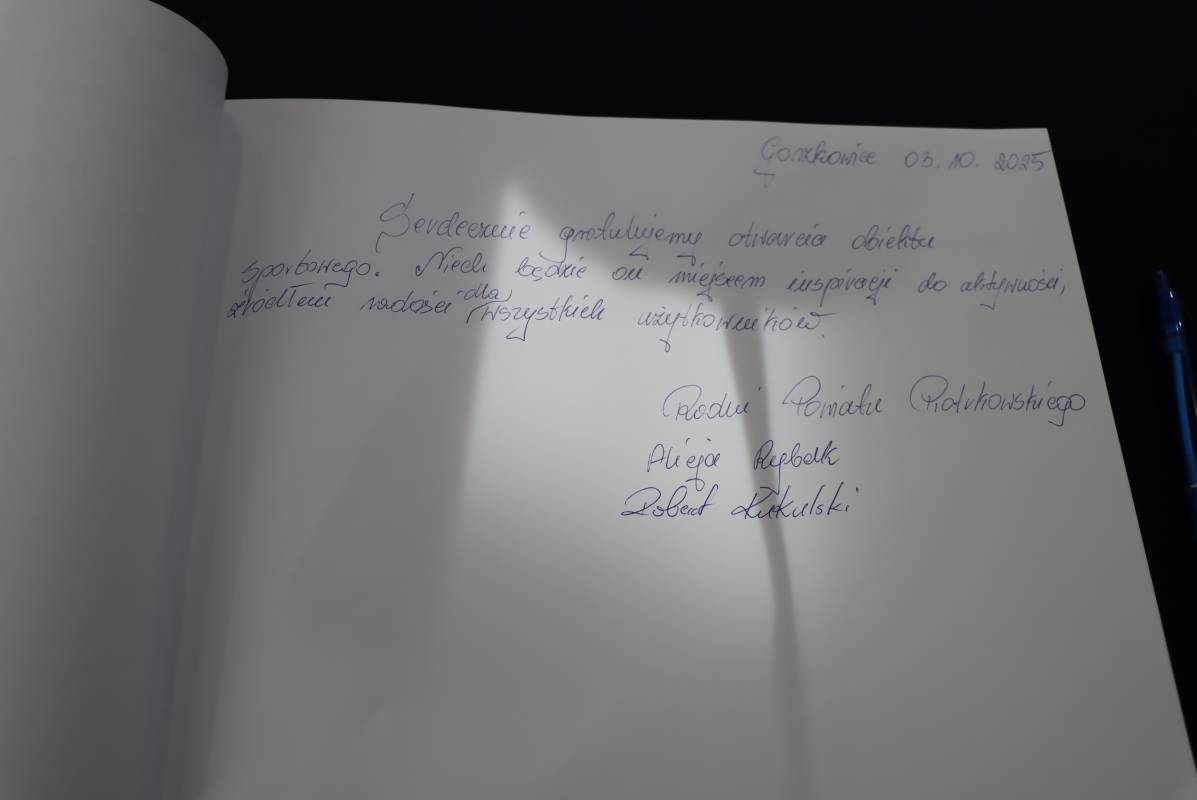 Gorzkowice 03.10.2025
Serdecznie gratulujemy otwarcia obiektu
sportowego. Niech będzie on miejscem inspiracji do aktywności,
źródłem radości dla wszystkich użytkowników.
Radni Powiatu Piotrkowskiego
Alicja Rybak
Robert Kukulski